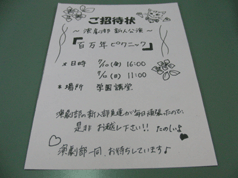 ご招待状
〜演劇部 新人公演〜
『百万年ピクニック』
*日時 9/10(金) 16:00
9/11(土) 11:00
*場所 学園講堂
演劇部の新人部員達が毎日頑張ったので、
是非お越し下さい!! たのしいよ
演劇部一同、お待ちしていますよ♪